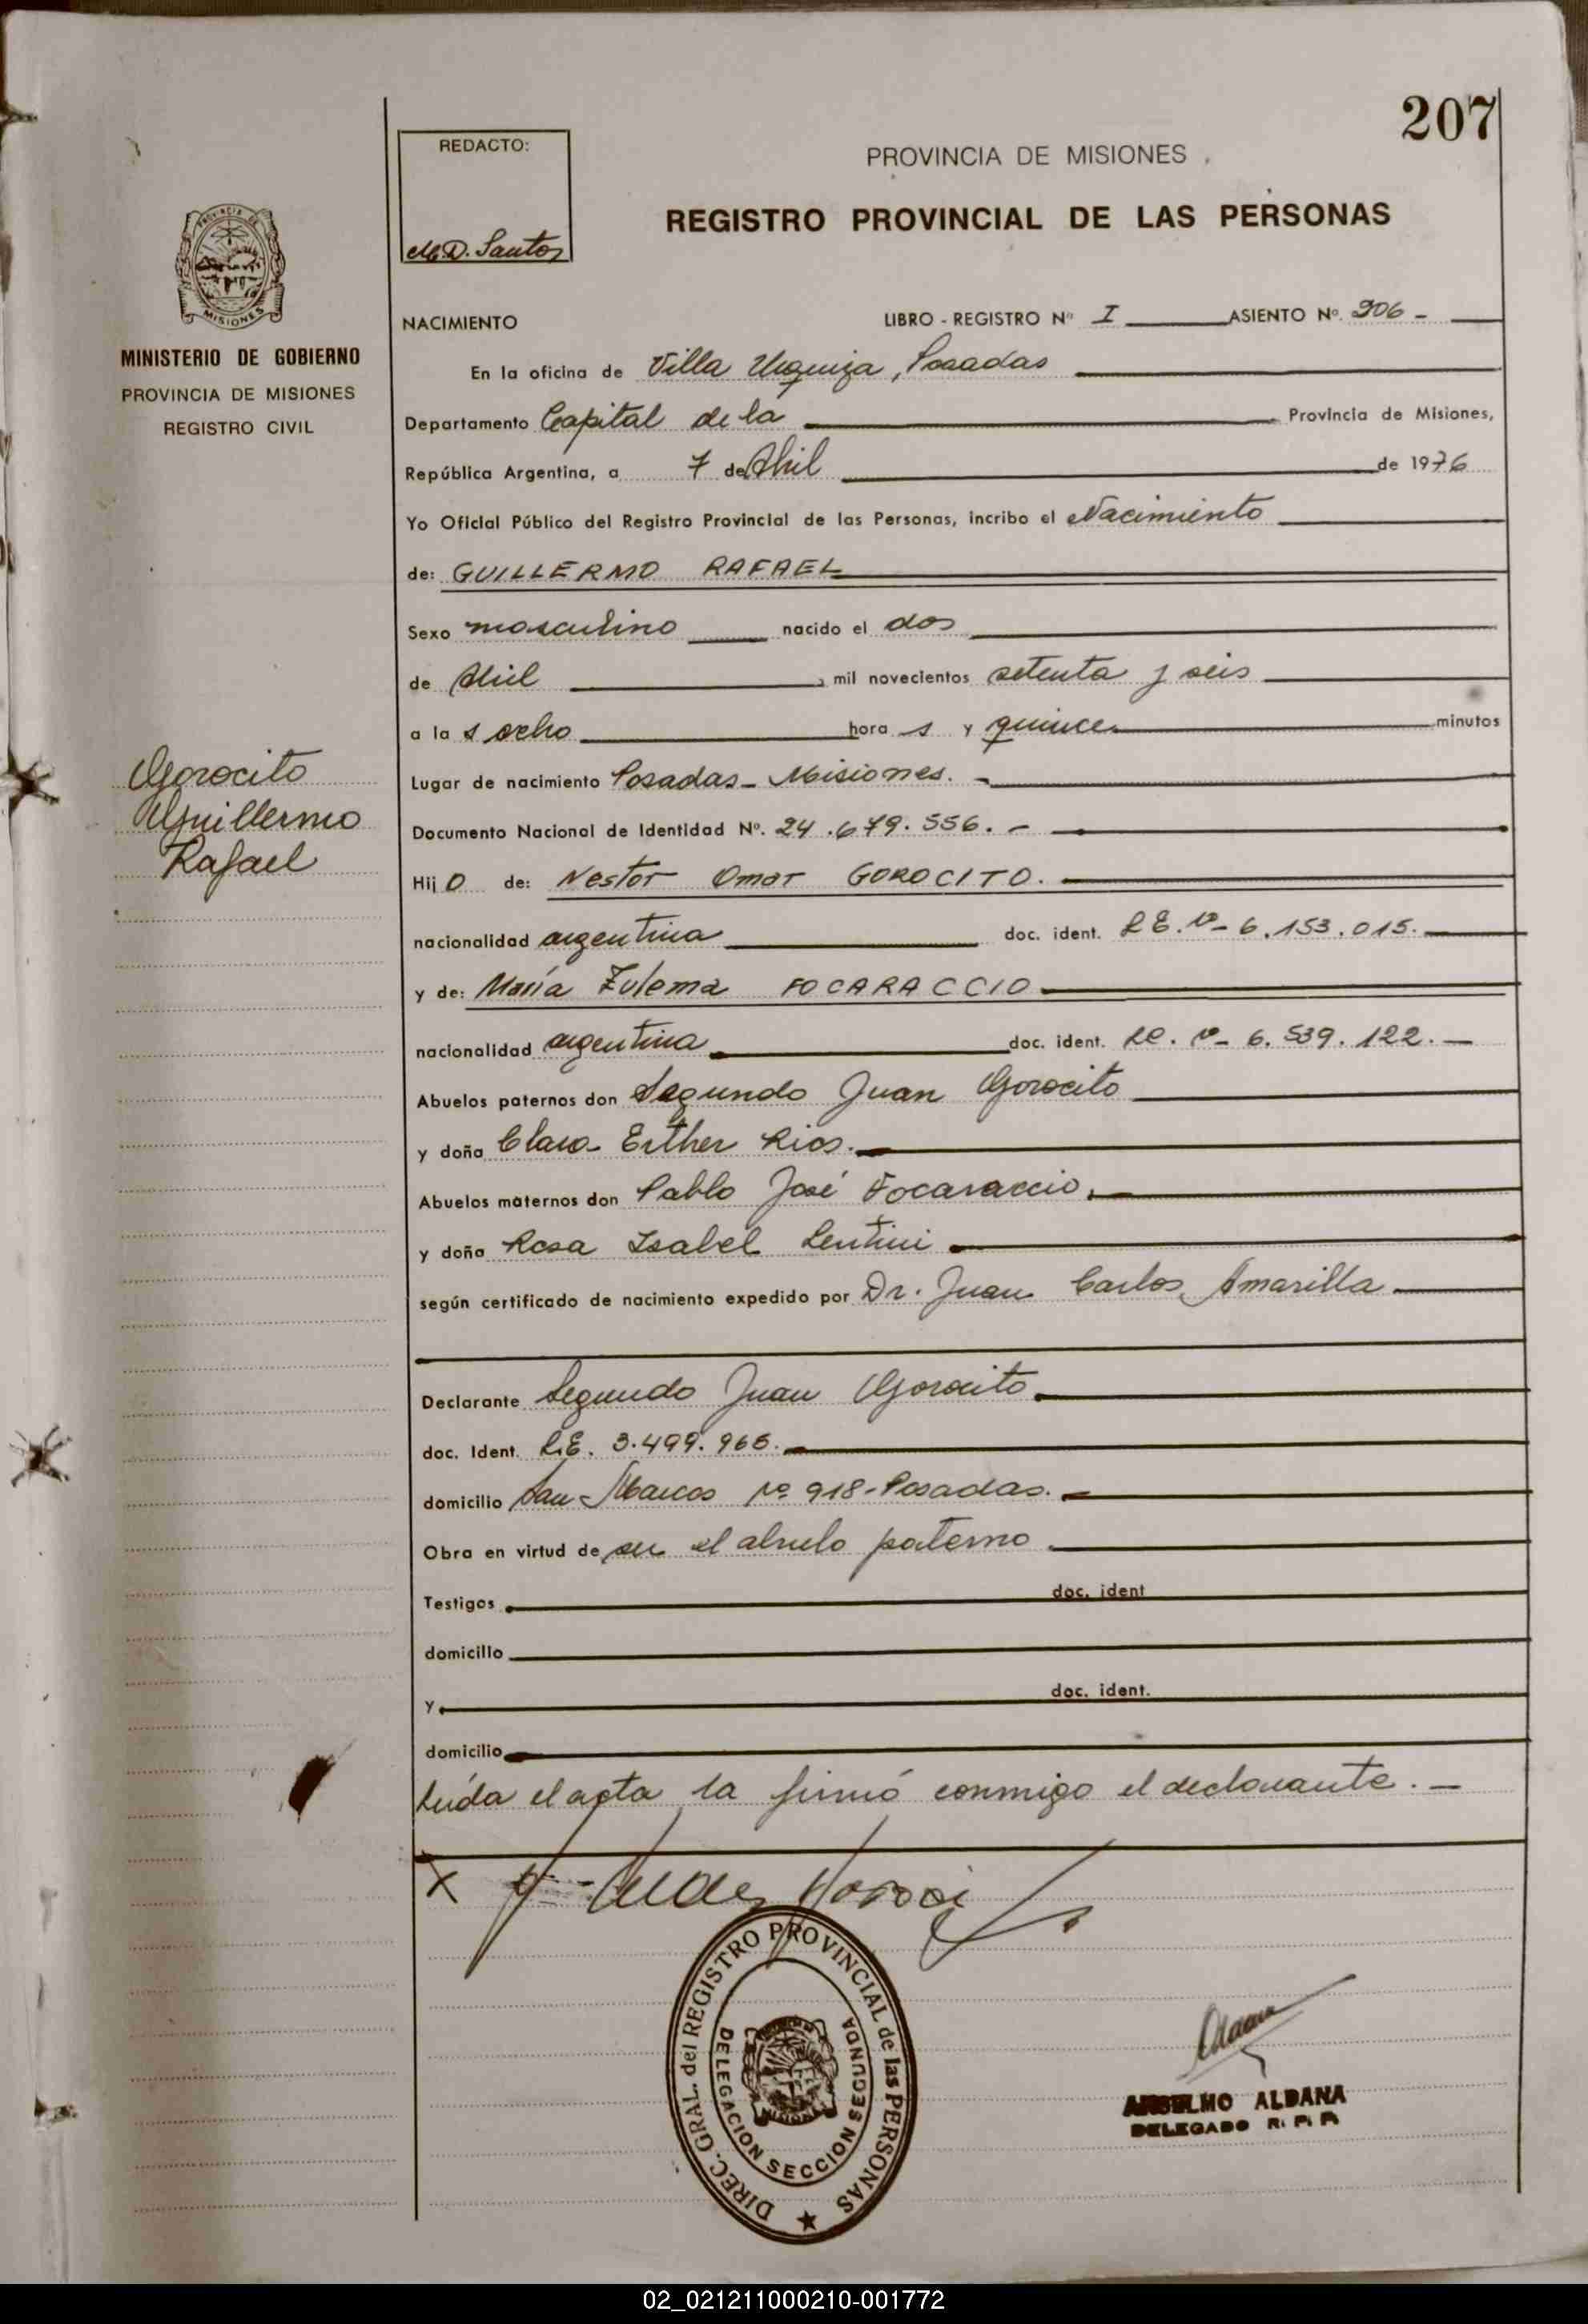 207
REDACTO:
M. D. Santos
PROVINCIA DE MISIONES
REGISTRO PROVINCIAL DE LAS PERSONAS
PROVINCIA DE
MISIONES
MINISTERIO DE GOBIERNO
PROVINCIA DE MISIONES
REGISTRO CIVIL
NACIMIENTO LIBRO - REGISTRO Nº I ASIENTO Nº. 206 -
En la oficina de Villa Urquiza, Posadas
Departamento Capital de la Provincia de Misiones,
República Argentina, a 7 de Abril de 1976
Yo Oficial Público del Registro Provincial de las Personas, incribo el Nacimiento
de: GUILLERMO RAFAEL
Sexo masculino nacido el dos
de Abril mil novecientos setenta y seis
a la s ocho hora s y quince minutos
Gorocito
Guillermo
Rafael
Lugar de nacimiento Posadas - Misiones. -
Documento Nacional de Identidad Nº. 24.679.556. -
Hij o de: Nestor Omar GOROCITO.
nacionalidad argentina doc. ident. L E. Nº 6.153.015.
y de: María Zulema FOCARACCIO
nacionalidad argentina doc. ident. LC. Nº 6.539.122. -
Abuelos paternos don Segundo Juan Gorocito
y doña Clara Esther Rios.
Abuelos maternos don Pablo José Focaraccio.
y doña Rosa Isabel Lentini
según certificado de nacimiento expedido por Dr. Juan Carlos Amarilla
Declarante Segundo Juan Gorocito
doc. Ident. L.E. 3.499.966.
domicilio San Marcos Nº 918 - Posadas.
Obra en virtud de ser el abuelo paterno
Testigos doc. ident
domicilio
y doc. ident.
domicilio
Leída el acta la firmó conmigo el declarante. -
X
DIREC. GRAL. del REGISTRO PROVINCIAL de las PERSONAS
DELEGACION SECCION SEGUNDA
ANSELMO ALDANA
DELEGADO R. P. P.
02_021211000210-001772